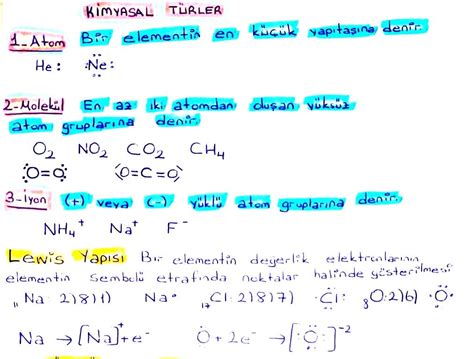 KİMYASAL TÜRLER
1-Atom Bir elementin en küçük yapıtaşına denir.
He: :Ne:
2-Molekül En az iki atomdan oluşan yüksüz
atom gruplarına denir.
O₂ NO₂ CO₂ CH₄
O=O O=C=O
3-İyon (+) veya (-) yüklü atom gruplarına denir.
NH₄⁺ Na⁺ F⁻
Lewis Yapısı Bir elementin değerlik elektronlarının
elementin sembolü etrafında noktalar halinde gösterilmesi
₁₁Na: 2)8)1) Na• ₁₇Cl: 2)8)7) :Cl: ₈O:2)6) •O•
Na → [Na]⁺+e⁻ O + 2e⁻ → [:O:]⁻²